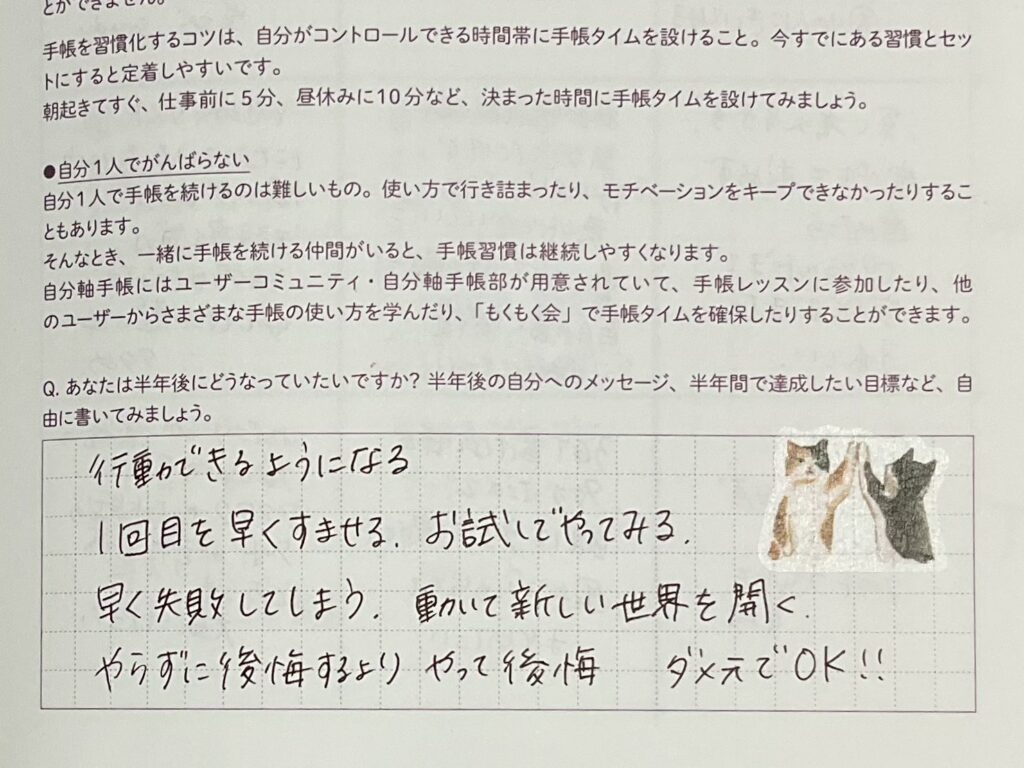 とができません。
手帳を習慣化するコツは、自分がコントロールできる時間帯に手帳タイムを設けること。今すでにある習慣とセッ
トにすると定着しやすいです。
朝起きてすぐ、仕事前に5分、昼休みに10分など、決まった時間に手帳タイムを設けてみましょう。
●自分1人でがんばらない
自分1人で手帳を続けるのは難しいもの。使い方で行き詰まったり、モチベーションをキープできなかったりするこ
ともあります。
そんなとき、一緒に手帳を続ける仲間がいると、手帳習慣は継続しやすくなります。
自分軸手帳にはユーザーコミュニティ・自分軸手帳部が用意されていて、手帳レッスンに参加したり、他
のユーザーからさまざまな手帳の使い方を学んだり、「もくもく会」で手帳タイムを確保したりすることができます。
Q. あなたは半年後にどうなっていたいですか? 半年後の自分へのメッセージ、半年間で達成したい目標など、自
由に書いてみましょう。
行動できるようになる
1回目を早くすませる. お試しでやってみる.
早く失敗してしまう. 動いて新しい世界を開く.
やらずに後悔するより やって後悔 ダメ元でOK!!